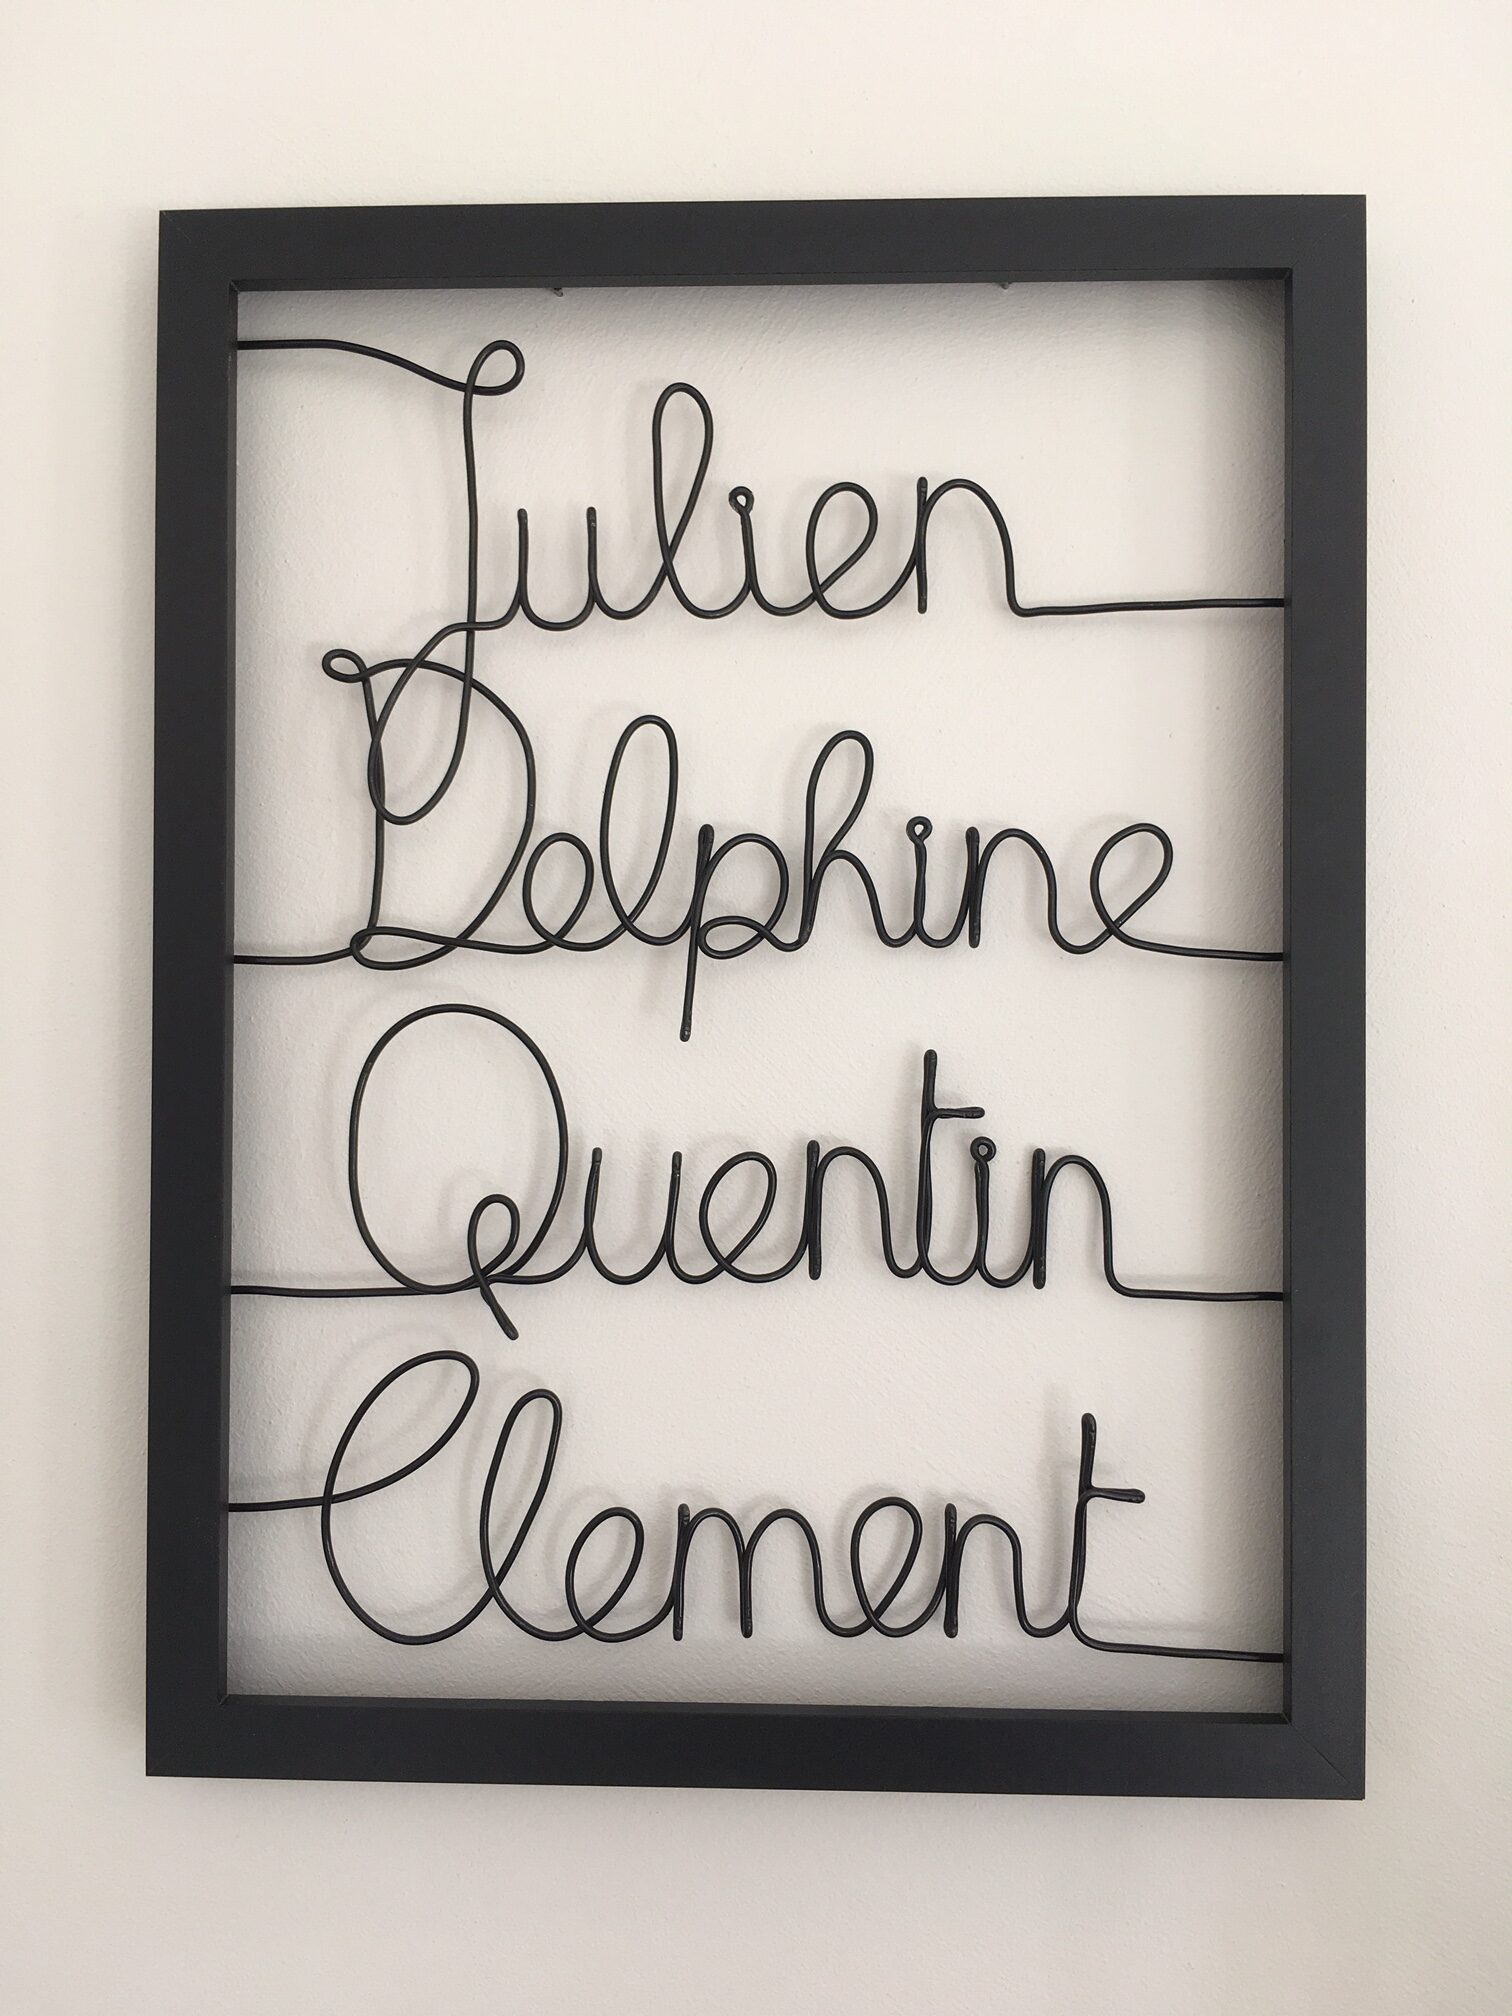 Julien
Delphine
Quentin
Clement